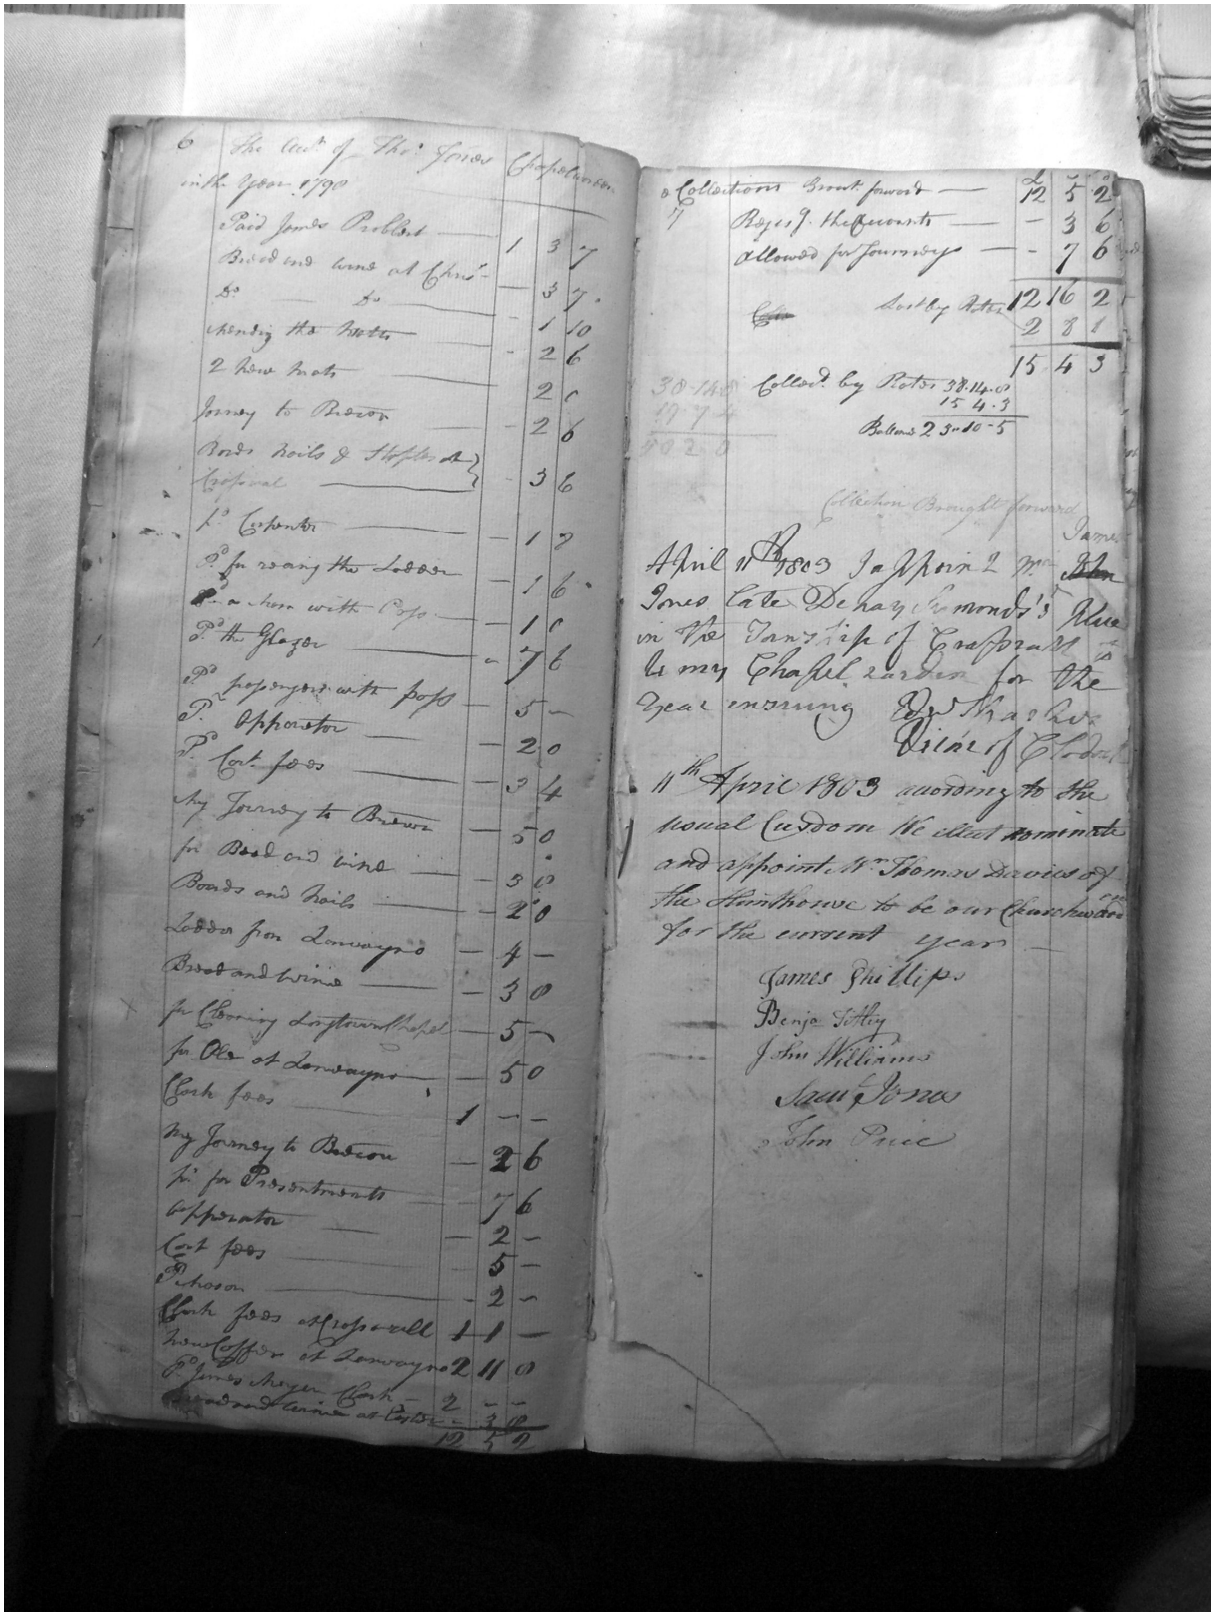 6 The Acct of Thos Jones Chapelwarden
in the Year 1790
Paid James Probbert 1 3 7
Bread and wine at Chris - 3 7
Do Do - 1 10
mending the - 2 6
2 New mats 2 0
Jorney to Brecon - 2 6
Bords Nails & Staples at }
Crasswal - 3 6
Pd Carpenter - 1 8
Pd for the Ladder - 1 6
Pd a man with Pass - 1 0
Pd the Glazer - 7 6
Pd with pass - 5 -
Pd Apporetor - 2 0
Pd Cort fees - 3 4
My Journey to Brecon - 5 0
for Bread and wine - 3 8
Boards and Nails - 2 0
Ladder from Lanvayno - 4 -
Bread and Wine - 3 8
for Cleaning Longtown Chapel - 5 -
for Ale at Lanvayno - 5 0
Clark fees 1 - -
My Jorney to Brecon - 2 6
Pd for Presentments - 7 6
Apperator - 2 -
Cort fees - 5 -
Pd Mason - 2 -
Clark fees at Craswell 1 1 -
New Coffer at Lanvayno 2 11 0
Pd James Clark 2 - -
Bread and Wine at - 3 8
12 5 2
Collections Brout forward 12 5 2
7 the Accounts - 3 6
Allowed for Journey - 7 6
Lost by Rates 12 16 2
2 8 1
15 4 3
Collecd by Rates 38.14.8
15 4.3
Ballance 23-10-5
38.14.8
50 2 0
Collection Brought forward
James
April 11th 1803 I appoin 2 Mr John
Jones late Simonds's
in the Township of Craswall to
be my Chapel warden for the
Year insuing Edw
Vicar of Clodock
11th April 1803 according to the
usual Custom We elect nominate
and appoint Mr Thomas Davies of
the Hunthouse to be our Churchwarden
for the current year
James Phillips
Benja
John Williams
Saml Jones
John Price